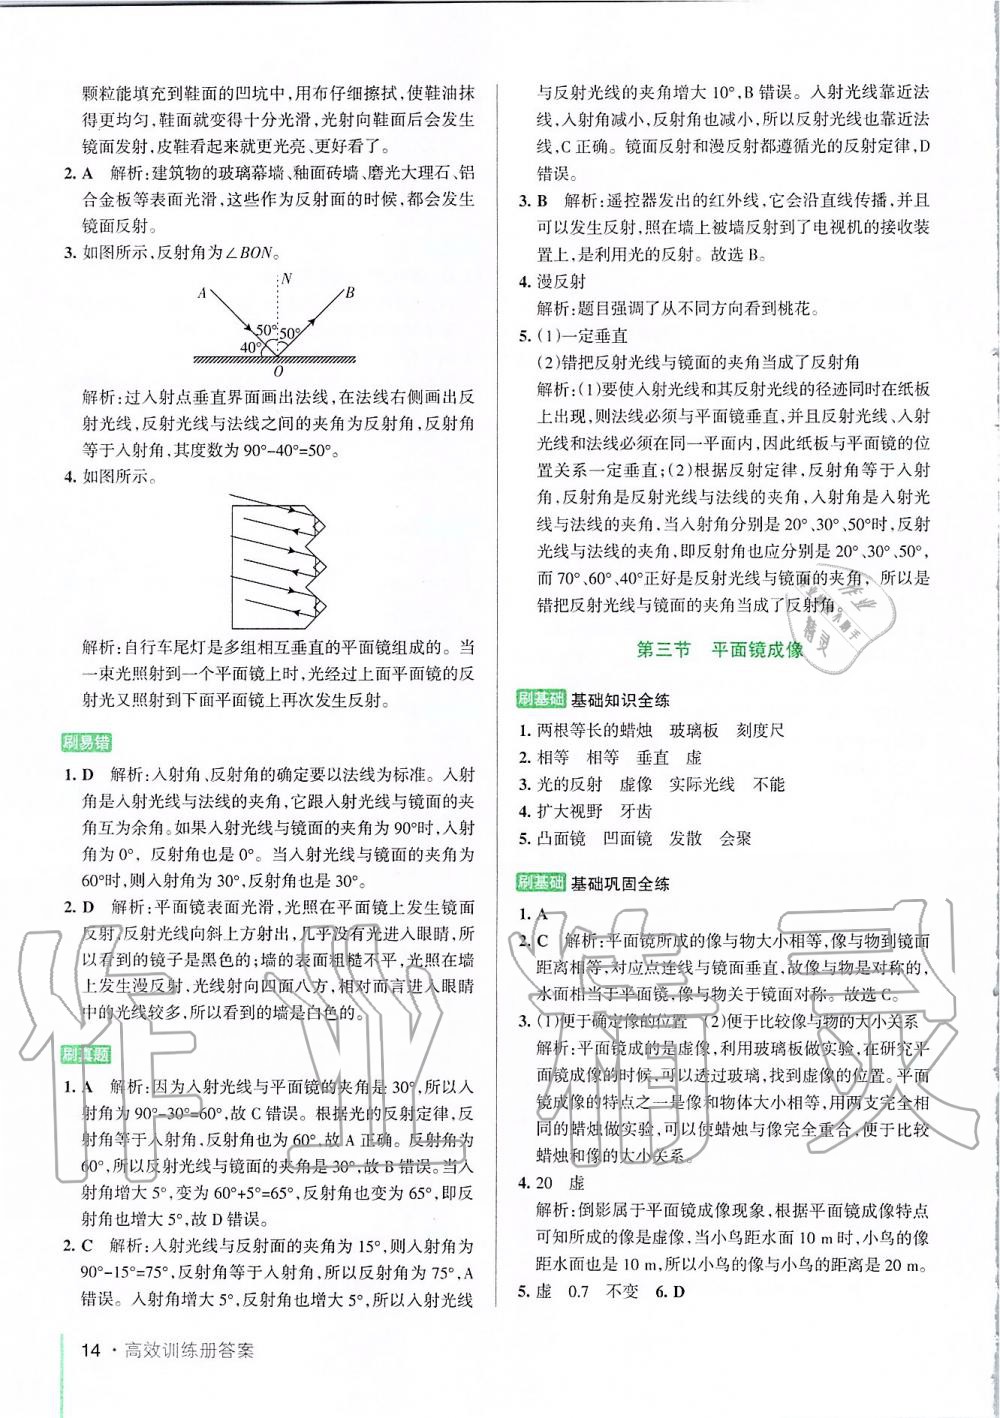 颗粒能填充到鞋面的凹坑中,用布仔细擦拭,使鞋油抹
得更均匀,鞋面就变得十分光滑,光射向鞋面后会发生
镜面发射,皮鞋看起来就更光亮、更好看了。
2. A 解析:建筑物的玻璃幕墙、釉面砖墙、磨光大理石、铝
合金板等表面光滑,这些作为反射面的时候,都会发生
镜面反射。
3. 如图所示,反射角为∠BON。
N
A
B
50°
50°
40°
O
解析:过入射点垂直界面画出法线,在法线右侧画出反
射光线,反射光线与法线之间的夹角为反射角,反射角
等于入射角,其度数为90°-40°=50°。
4. 如图所示。
解析:自行车尾灯是多组相互垂直的平面镜组成的。当
一束光照射到一个平面镜上时,光经过上面平面镜的反
射光又照射到下面平面镜上再次发生反射。
刷易错
1. D 解析:入射角、反射角的确定要以法线为标准。入射
角是入射光线与法线的夹角,它跟入射光线与镜面的夹
角互为余角。如果入射光线与镜面的夹角为90°时,入射
角为0°,反射角也是0°。当入射光线与镜面的夹角为
60°时,则入射角为30°,反射角也是30°。
2. D 解析:平面镜表面光滑,光照在平面镜上发生镜面
反射,反射光线向斜上方射出,几乎没有光进入眼睛,所
以看到的镜子是黑色的;墙的表面粗糙不平,光照在墙
上发生漫反射,光线射向四面八方,相对而言进入眼睛
中的光线较多,所以看到的墙是白色的。
刷真题
1. A 解析:因为入射光线与平面镜的夹角是30°,所以入
射角为90°-30°=60°,故C错误。根据光的反射定律,反
射角等于入射角,反射角也为60°,故A正确。反射角为
60°,所以反射光线与镜面的夹角是30°,故B错误。当入
射角增大5°,变为60°+5°=65°,反射角也变为65°,即反
射角也增大5°,故D错误。
2. C 解析:入射光线与反射面的夹角为15°,则入射角为
90°-15°=75°,反射角等于入射角,所以反射角为75°,A
错误。入射角增大5°,反射角也增大5°,所以入射光线
与反射光线的夹角增大10°,B错误。入射光线靠近法
线,入射角减小,反射角也减小,所以反射光线也靠近法
线,C正确。镜面反射和漫反射都遵循光的反射定律,D
错误。
3. B 解析:遥控器发出的红外线,它会沿直线传播,并且
可以发生反射,照在墙上被墙反射到了电视机的接收装
置上,是利用光的反射。故选B。
4. 漫反射
解析:题目强调了从不同方向看到桃花。
5. (1)一定垂直
(2)错把反射光线与镜面的夹角当成了反射角
解析:(1)要使入射光线和其反射光线的径迹同时在纸板
上出现,则法线必须与平面镜垂直,并且反射光线、入射
光线和法线必须在同一平面内,因此纸板与平面镜的位
置关系一定垂直;(2)根据反射定律,反射角等于入射
角,反射角是反射光线与法线的夹角,入射角是入射光
线与法线的夹角,当入射角分别是20°、30°、50°时,反射
光线与法线的夹角,即反射角也应分别是20°、30°、50°,
而70°、60°、40°正好是反射光线与镜面的夹角,所以是
错把反射光线与镜面的夹角当成了反射角
第三节 平面镜成像
刷基础 基础知识全练
1. 两根等长的蜡烛 玻璃板 刻度尺
2. 相等 相等 垂直 虚
3. 光的反射 虚像 实际光线 不能
4. 扩大视野 牙齿
5. 凸面镜 凹面镜 发散 会聚
刷基础 基础巩固全练
1. A
2. C 解析:平面镜所成的像与物大小相等,像与物到镜面
距离相等,对应点连线与镜面垂直,故像与物是对称的,
水面相当于平面镜,像与物关于镜面对称。故选C。
3. (1)便于确定像的位置 (2)便于比较像与物的大小关系
解析:平面镜成的是虚像,利用玻璃板做实验,在研究平
面镜成像的时候,可以透过玻璃,找到虚像的位置。平面
镜成像的特点之一是像和物体大小相等,用两支完全相
同的蜡烛做实验,可以使蜡烛与像完全重合,便于比较
蜡烛和像的大小关系。
4. 20 虚
解析:倒影属于平面镜成像现象,根据平面镜成像特点
可知所成的像是虚像,当小鸟距水面10 m时,小鸟的像
距水面也是10 m,所以小鸟的像与小鸟的距离是20 m。
5. 虚 0.7 不变 6. D
14 · 高效训练册答案
作业精灵